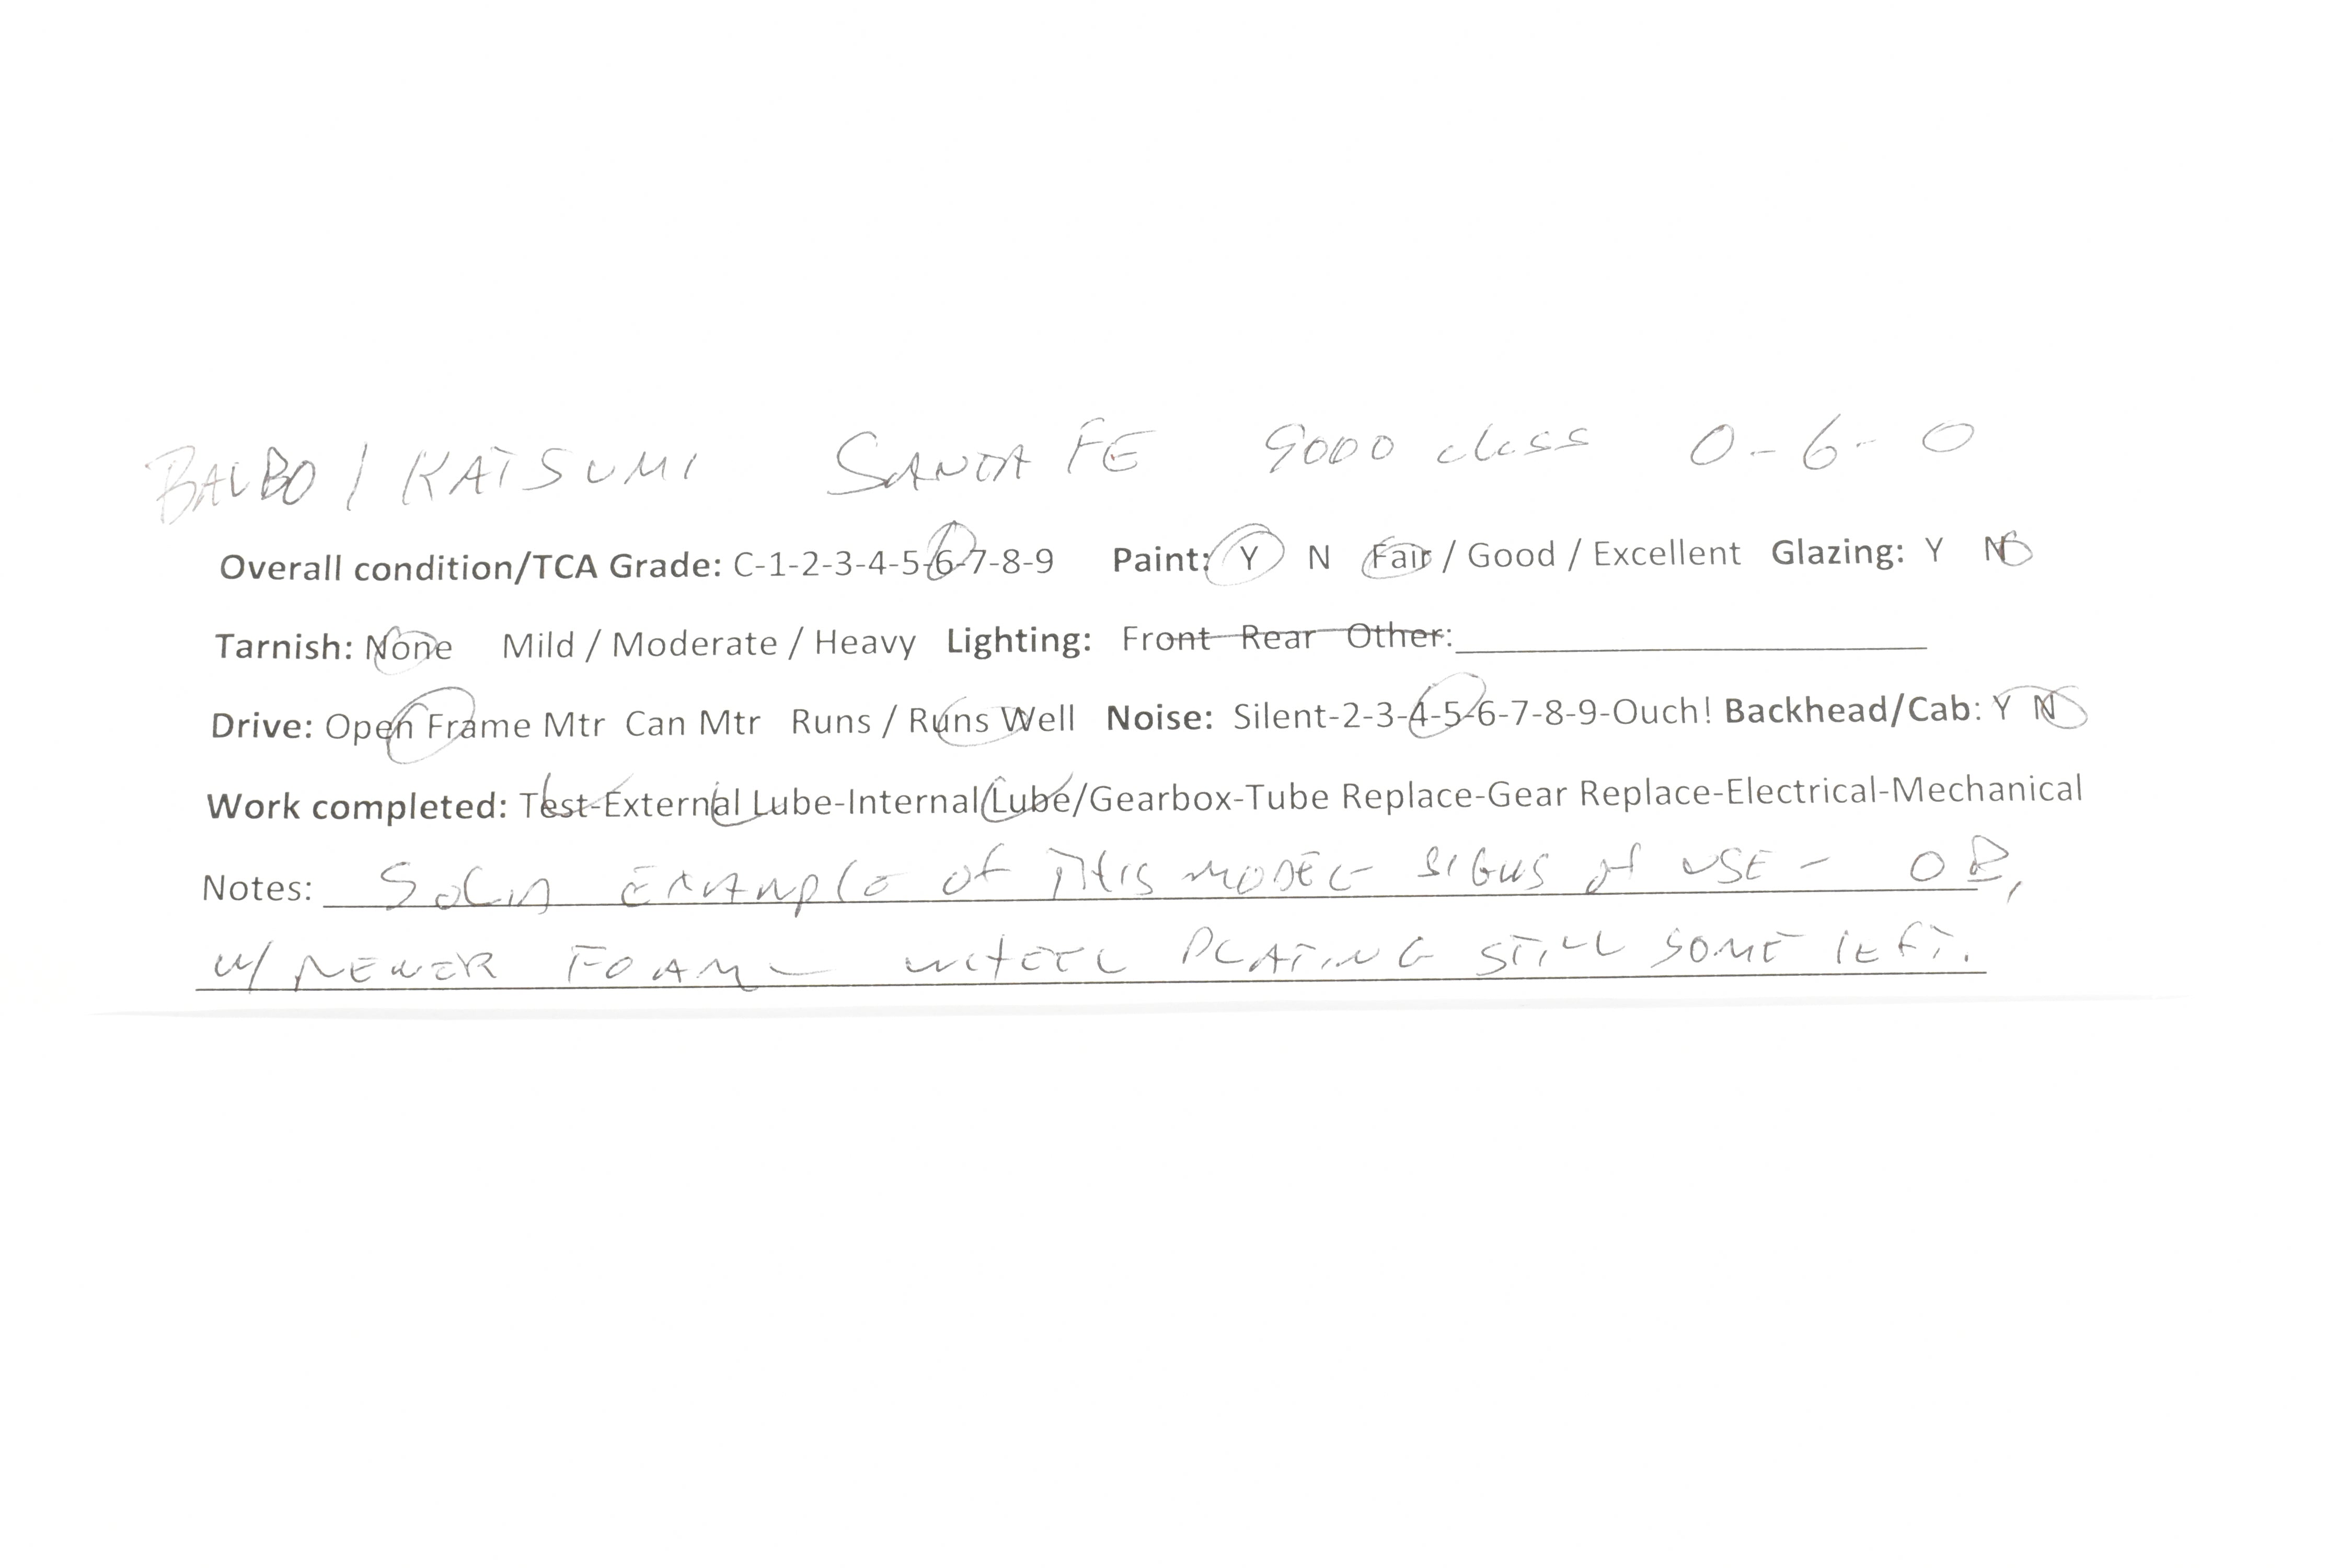 BALBO / KATSUMI SANTA FE 9000 class 0-6-0
Overall condition/TCA Grade: C-1-2-3-4-5-6-7-8-9 Paint: Y N Fair / Good / Excellent Glazing: Y N
Tarnish: None Mild / Moderate / Heavy Lighting: Front Rear Other:
Drive: Open Frame Mtr Can Mtr Runs / Runs Well Noise: Silent-2-3-4-5-6-7-8-9-Ouch! Backhead/Cab: Y N
Work completed: Test-External Lube-Internal Lube/Gearbox-Tube Replace-Gear Replace-Electrical-Mechanical
Notes: SOLID EXAMPLE OF THIS MODEL SIGNS of USE - OB,
W/ NEWER FOAM - WHEEL PLATING STILL SOME LEFT.